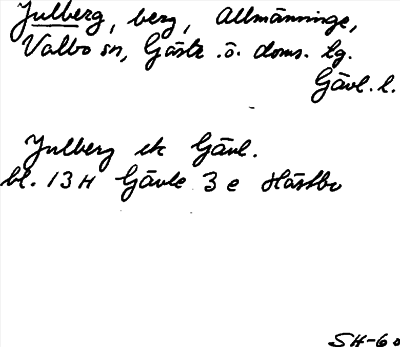 Julberg, berg, Allmänninge,
Valbo sn, Gästr. ö. doms. lg.
Gävl. l.
Julberg ek Gävl.
bl. 13 H Gävle 3 e Hästbo
SH-60